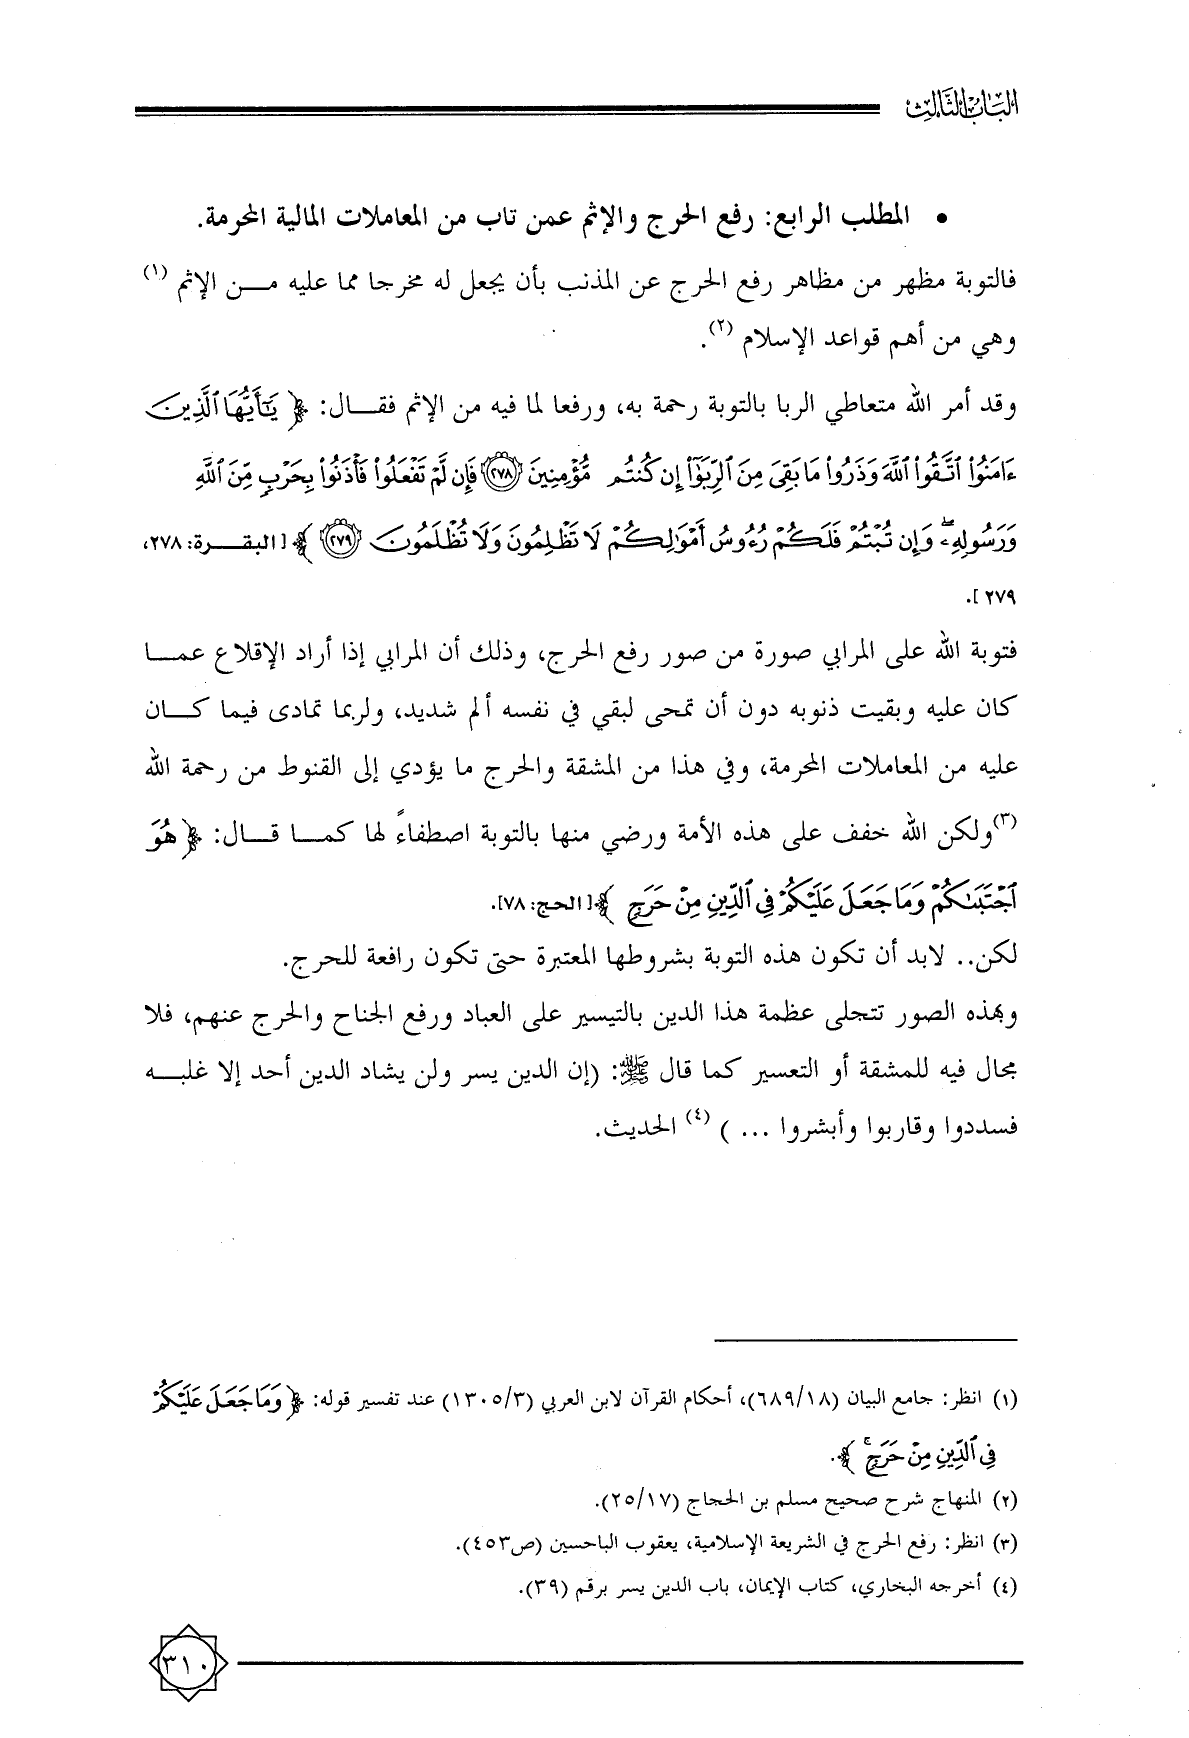 الباب الثالث
• المطلب الرابع: رفع الحرج والإثم عمن تاب من المعاملات المالية المحرمة.
فالتوبة مظهر من مظاهر رفع الحرج عن المذنب بأن يجعل له مخرجا مما عليه مـــن الإثم (١)
وهي من أهم قواعد الإسلام (٢).
وقد أمر الله متعاطي الربا بالتوبة رحمة به، ورفعا لما فيه من الإثم فقـــال: ﴿ يَٰٓأَيُّهَا ٱلَّذِينَ
ءَامَنُوا۟ ٱتَّقُوا۟ ٱللَّهَ وَذَرُوا۟ مَا بَقِىَ مِنَ ٱلرِّبَوٰٓا۟ إِن كُنتُم مُّؤْمِنِينَ ٢٧٨ فَإِن لَّمْ تَفْعَلُوا۟ فَأْذَنُوا۟ بِحَرْبٍ مِّنَ ٱللَّهِ
وَرَسُولِهِۦ ۖ وَإِن تُبْتُمْ فَلَكُمْ رُءُوسُ أَمْوَٰلِكُمْ لَا تَظْلِمُونَ وَلَا تُظْلَمُونَ ٢٧٩ ﴾ [البقـــرة: ٢٧٨،
٢٧٩].
فتوبة الله على المرابي صورة من صور رفع الحرج، وذلك أن المرابي إذا أراد الإقلاع عمـــا
كان عليه وبقيت ذنوبه دون أن تمحى لبقي في نفسه ألم شديد، ولربما تمادى فيما كـــان
عليه من المعاملات المحرمة، وفي هذا من المشقة والحرج ما يؤدي إلى القنوط من رحمة الله
(٣)ولكن الله خفف على هذه الأمة ورضي منها بالتوبة اصطفاءً لها كمـــا قـــال: ﴿ هُوَ
ٱجْتَبَىٰكُمْ وَمَا جَعَلَ عَلَيْكُمْ فِى ٱلدِّينِ مِنْ حَرَجٍ ﴾[الحج: ٧٨].
لكن.. لابد أن تكون هذه التوبة بشروطها المعتبرة حتى تكون رافعة للحرج.
وبهذه الصور تتجلى عظمة هذا الدين بالتيسير على العباد ورفع الجناح والحرج عنهم، فلا
مجال فيه للمشقة أو التعسير كما قال ﷺ: (إن الدين يسر ولن يشاد الدين أحد إلا غلبـــه
فسددوا وقاربوا وأبشروا ... ) (٤) الحديث.
(١) انظر: جامع البيان (٦٨٩/١٨)، أحكام القرآن لابن العربي (١٣٠٥/٣) عند تفسير قوله: ﴿ وَمَا جَعَلَ عَلَيْكُمْ
فِى ٱلدِّينِ مِنْ حَرَجٍ ۚ ﴾.
(٢) المنهاج شرح صحيح مسلم بن الحجاج (٢٥/١٧).
(٣) انظر: رفع الحرج في الشريعة الإسلامية، يعقوب الباحسين (ص٤٥٣).
(٤) أخرجه البخاري، كتاب الإيمان، باب الدين يسر برقم (٣٩).
٣١٠